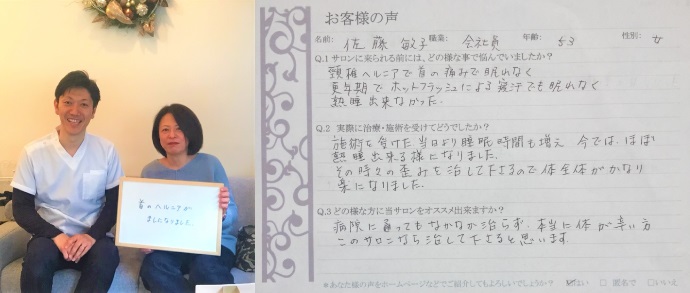 首のヘルニアが
ましになりました。
お客様の声
名前: 佐藤 敏子 職業: 会社員 年齢: 53 性別: 女
Q.1 サロンに来られる前には、どの様な事で悩んでいましたか?
頸椎ヘルニアで首の痛みで眠れなく
更年期でホットフラッシュによる寝汗でも眠れなく
熟睡出来なかった.
Q.2 実際に治療・施術を受けてどうでしたか?
施術を受けた当日より睡眠時間も増え 今では、ほぼ
熟睡出来る様になりました.
その時々の歪みを治して下さるので体全体がかなり
楽になりました.
Q.3 どの様な方に当サロンをオススメ出来ますか?
病院に通ってもなかなか治らず、本当に体が辛い方
このサロンなら治して下さると思います.
*あなた様の声をホームページなどでご紹介してもよろしいでしょうか? ☑はい □匿名で □いいえ